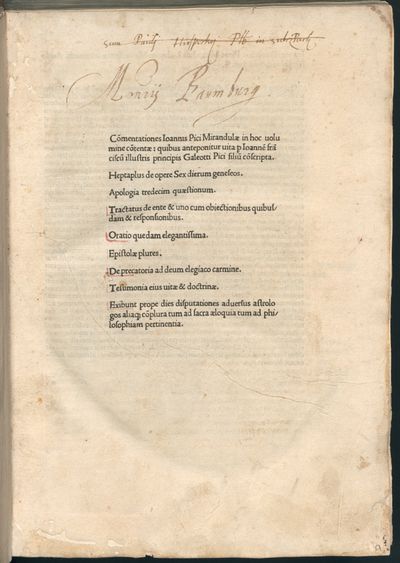 Cōmentationes Ioannis Pici Mirandulæ in hoc uolu
mine cōtentæ: quibus anteponitur uita p Ioannē frā
ciscū illustris principis Galeotti Pici filiū cōscripta.
Heptaplus de opere Sex dierum geneseos.
Apologia tredecim quæstionum.
Tractatus de ente & uno cum obiectionibus quibus/
dam & responsionibus.
Oratio quedam elegantissima.
Epistolæ plures.
De precatoria ad deum elegiaco carmine.
Testimonia eius uitæ & doctrinæ.
Exibunt prope dies disputationes aduersus astrolo
gos aliaq; cōplura tum ad sacra æloquia tum ad phi/
losophiam pertinentia.